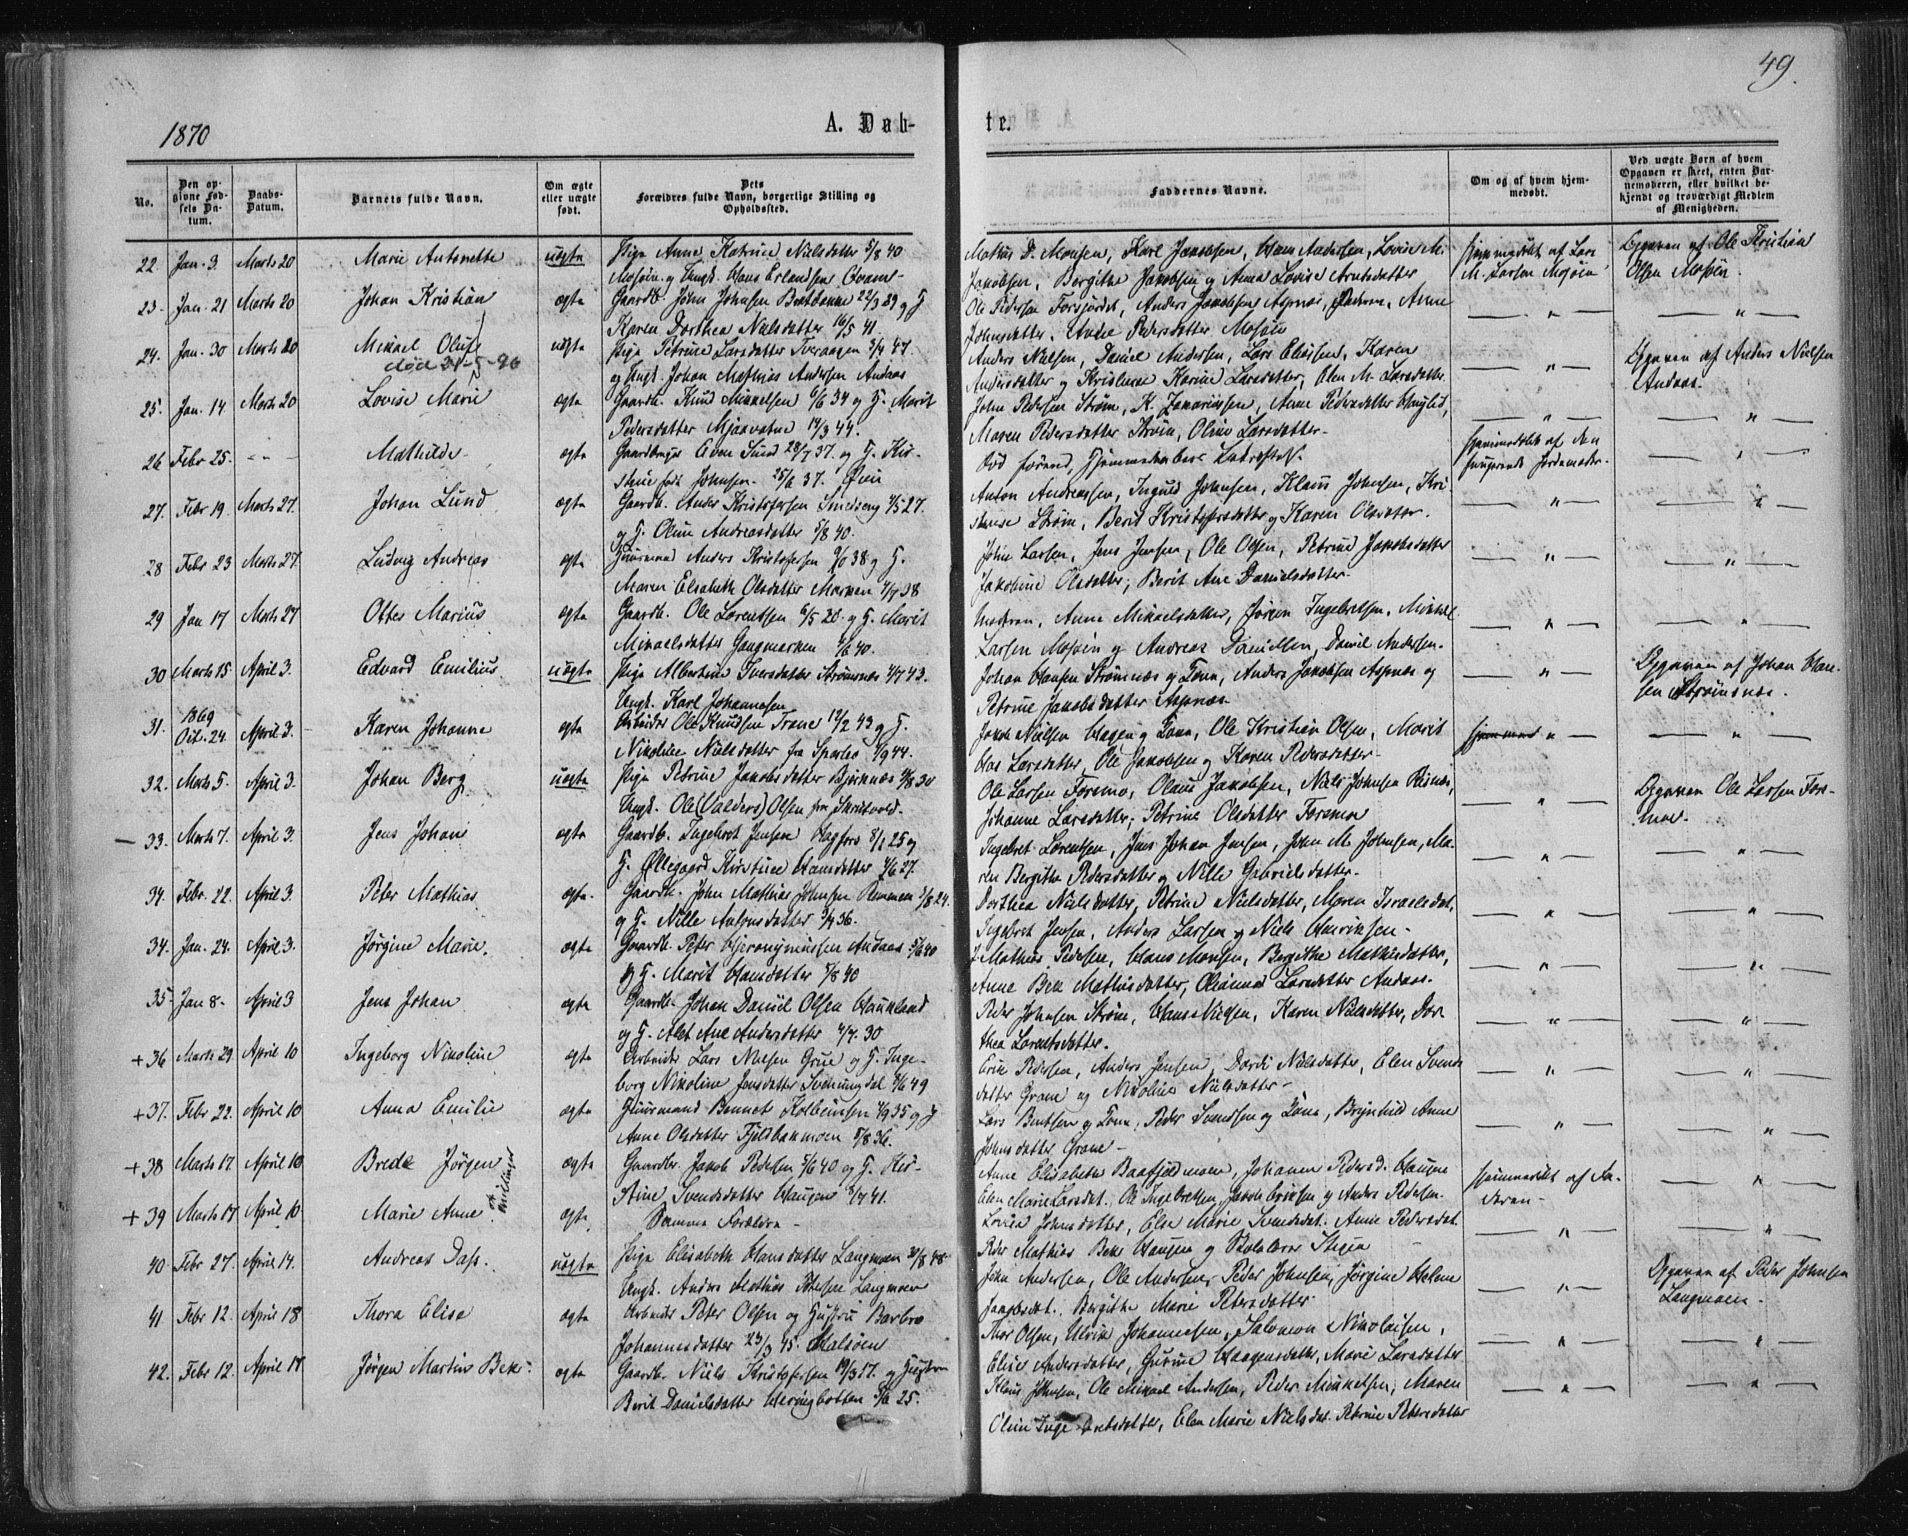 49.
1870
A. Døb-
te.
No.
Den opgivne Fødsels Datum.
Daabs-Datum.
Barnets fulde Navn.
Om ægte eller uægte født.
Dets Forældres fulde Navn, borgerlige Stilling og Opholdssted.
Faddernes Navne.
Om og af hvem hjemmedøbt.
Ved uægte Børn af hvem Opgaven er skeet, enten Barnemoderen, eller hvilket bekjendt og troværdigt Medlem af Menigheden.
22. Jan. 3. Marts 20 Marie Antonette uægte Pige Anne Katrine Nielsdatter 5/8 40
Mosøin og Ungk. Hans Erlandsen
Karl Jakobsen, Hans Andersen, Lovise M.
Jakobsen, Bergithe Jakobsen og Anna Lovise Arntsdatter
Hjemmedøbt af Lars M. Larsen Mosøin
Opgaven af Ole Kristian Olsen Mosøen.
23. Jan. 21 Marts 20 Johan Kristian ægte Gaardb. John Johnsen 22/3 29 og H.
Karen Dorthea Nielsdatter 16/5 41.
Ole Pedersen Forsjordet, Anders Jakobsen Aspnæs, Anne
Johnsdatter, Pedersdatter Mosøin
24. Jan. 30 Marts 20 Mikael Oluf uægte Pige Petrine Larsdatter Tveraaen 3/4 47.
død 31-5-96
og Ungk. Johan Mathias Andersen Andaas
Anders Nielsen, Daniel Andersen, Lars Eliasen, Karen
Andersdatter og Kristine Karine Larsdatter, Elen M. Larsdatter
Opgaven af Anders Nielsen Andaas.
25. Jan. 14 Marts 20 Lovise Marie ægte Gaardb. Knud Mikkelsen 6/6 34 og H. Marit
Pedersdatter Mjaavatne 14/3 44.
John Pedersen Strøm, K. Zakariassen, Anne Pedersdatter
Maren Pedersdatter Strøm, Oline Larsdatter
26 Febr 25. - - - Mathilde ægte Gaardbruger Even Lund 28/7 37. og H. Kir-
stine født Johnsen 25/6 37.
Død førend Hjemmedaabens Bekræftelse.
Hjemmedøbt af den fungerende Jordemoder.
27. Febr 19. Marts 27. Johan Lund ægte Gaardb. Anders Kristofersen Smedseng 4/5 27.
og H. Oline Andreasdatter 5/8 40.
Anton Andreassen, Ingvald Johnsen, Klaus Johnsen, Kri-
stense Strøm, Berit Kristofersdatter og Karen Olsdatter.
28 Febr 23 Marts 27. Ludvig Andreas ægte Huusmand Anders Kristofersen 9/6 38 og H.
Maren Elsabeth Olsdatter Marken 7/7 38
John Larsen, Jens Jensen, Ole Olsen, Petrine Jakobsdatter
Jakobine Olsdatter, Berit Ane Danielsdatter.
29 Jan 17 Marts 27 Ottes Marius ægte Gaardb. Ole Lorentsen 6/5 20. og H. Marit
Mikaelsdatter Gangmarken 4/6 40.
Moderen, Anne Mikaelsdatter, Jørgen Ingebretsen, Mikkel
Larsen Mosøen og Andreas Danielsen, Daniel Andersen.
30 Marts 15 April 3. Edvard Emilius uægte Pige Albertine Iversdatter Strømnæs 4/7 43.
Ungk. Karl Johannesen
Johan Hansen Strømnæs og Kone, Anders Jakobsen Aspnæs og
Petrine Jakobsdatter Aspnæs.
Opgaven af Johan Hansen Strømsnæs.
31. 1869 Oct. 24 April 3. Karen Johanne ægte Arbeider Ole Knudsen Trane 12/2 43 og H.
Nikoline Nielsdatter fra Sparbo 4/9 44.
Jakob Nielsen Hagen og Kone, Ole Kristian Olsen, Marit
Larsdatter, Ole Jakobsen og Karen Pedersdatter
32. Marts 5. April 3. Johan Berg uægte Pige Petrine Jakobsdatter Bjerknæs 9/8 30
Ungk. Ole (Valders) Olsen fra Skrutvold.
Ole Larsen Forsmo, Olaus Jakobsen, Niels Johnsen Risnæs,
Johanne Larsdatter, Petrine Olsdatter Forsmoe
Opgaven Ole Larsen Forsmoe.
33. Marts 7. April 3. Jens Johan ægte Gaardb. Ingebret Jensen Hagfors 8/1 25 og
H. Øllegaard Kirstine Hansdatter 4/6 27.
Ingebret Lorentsen, Jens Johan Jensen, John M. Johnsen, Ma-
ren Bergithe Pedersdatter og Nille Gabrielsdatter.
34. Febr. 22. April 3. Peter Mathias ægte. Gaardb. John Mathias Johnsen Remmen 3/8 24.
og H. Nille 3/4 36.
Dorthea Nielsdatter, Petrine Nielsdatter, Maren Israelsdat.
Ingebret Jensen, Anders Larsen og Niels Henriksen.
34. Jan. 24. April 3. Jørgine Marie. ægte Gaardb. Peter Hieronymussen Andaas 5/6 40
og H. Marit Hansdatter 5/8 40
Mathias Pedersen, Hans Monsen, Bergithe Mathisdatter,
Anne Bek Mathisdatter, Olianna Larsdatter Andaas.
35 Jan 8. April 3 Jens Johan ægte Gaardb. Johan Daniel Olsen Haukland
og H. Alet Ane Andersdatter 4/7. 30
Peder Johnsen Strøm, Hans Nielsen, Karen Nielsdatter, Dor-
thea Lorentsdatter.
+ 36 Marts 29. April 10 Ingeborg Nikoline ægte Arbeider Lars Nielsen Grue og H. Inge-
borg Nikoline Jensdatter Svenningdal 4/6 49
Erik Pedersen, Anders Jensen, Dordi Nielsdatter, Elen Svends
datter Grane og Nikoline Nielsdatter
+ 37. Febr 22. April 10 Anna Emilie ægte Huusmand Bennet Kolbeinsen 4/9 35 og H
Anne Olsdatter Fjeldbækmoen 5/8 36.
Lars Bentsen og Kone, Peder Svendsen og Kone, Brynhild Anne
Johnsdatter Grane
+ 38 Marts 17. April 10 Brede Jørgen ægte Gaardbr. Jakob Pedersen 5/6 40 og H. Kir-
stine Svendsdatter Haugen 8/7 41.
Tvillinger
Anne Elisabeth Baafjeldmoen, Johanna Pedersd. Haugen
Elen Marie Larsdat. Ole Ingebretsen, Jakob Eriksen og Anders Pedersen
Hjemmedøbt af Faderen
+ 39 Marts 17 April 10 Marie Anne ægte. Samme Forældre
Lovisa Johnsdatter, Else Marie Svendsdat. Anne Pedersdat.
Peder Mathias Bek Haugen og Skolelærer Stegen
40 Febr 27. April 14. Andreas Dass. uægte Pige Elisabeth Hansdatter Langmoen 30/8 48
Ungk. Anders Mathias Langmoen
John Andersen, Ole Andersen, Peder Johnsen, Jørgine Helene
Jakobsdt. Bergithe Marie Petersdatter
Opgaven af Peder Johnsen Langmoen.
41. Febr 12. April 18 Thora Elise ægte Arbeider Peter Olsen og Hustru Barbro
Johannesdatter 23/3 45. Halsøen
Thor Olsen, Ulrik Johannesen, Salomon Nikolaisen,
Elise Andersdatter, Gurine Haagensdatter, Marie Larsdatter
42. Febr 12. April 17 Jørgen Martin Bek. ægte Gaardb. Niels Kristofersen 19/3 17. og Hustru
Berit Danielsdatter Herringbotten 5/6 25.
Klaus Johnsen, Ole Mikael Andersen, Peder Mikkelsen, Maren
Oline Ingebretsdatter, Elen Marie Nielsdat. Petrine Petersdatter